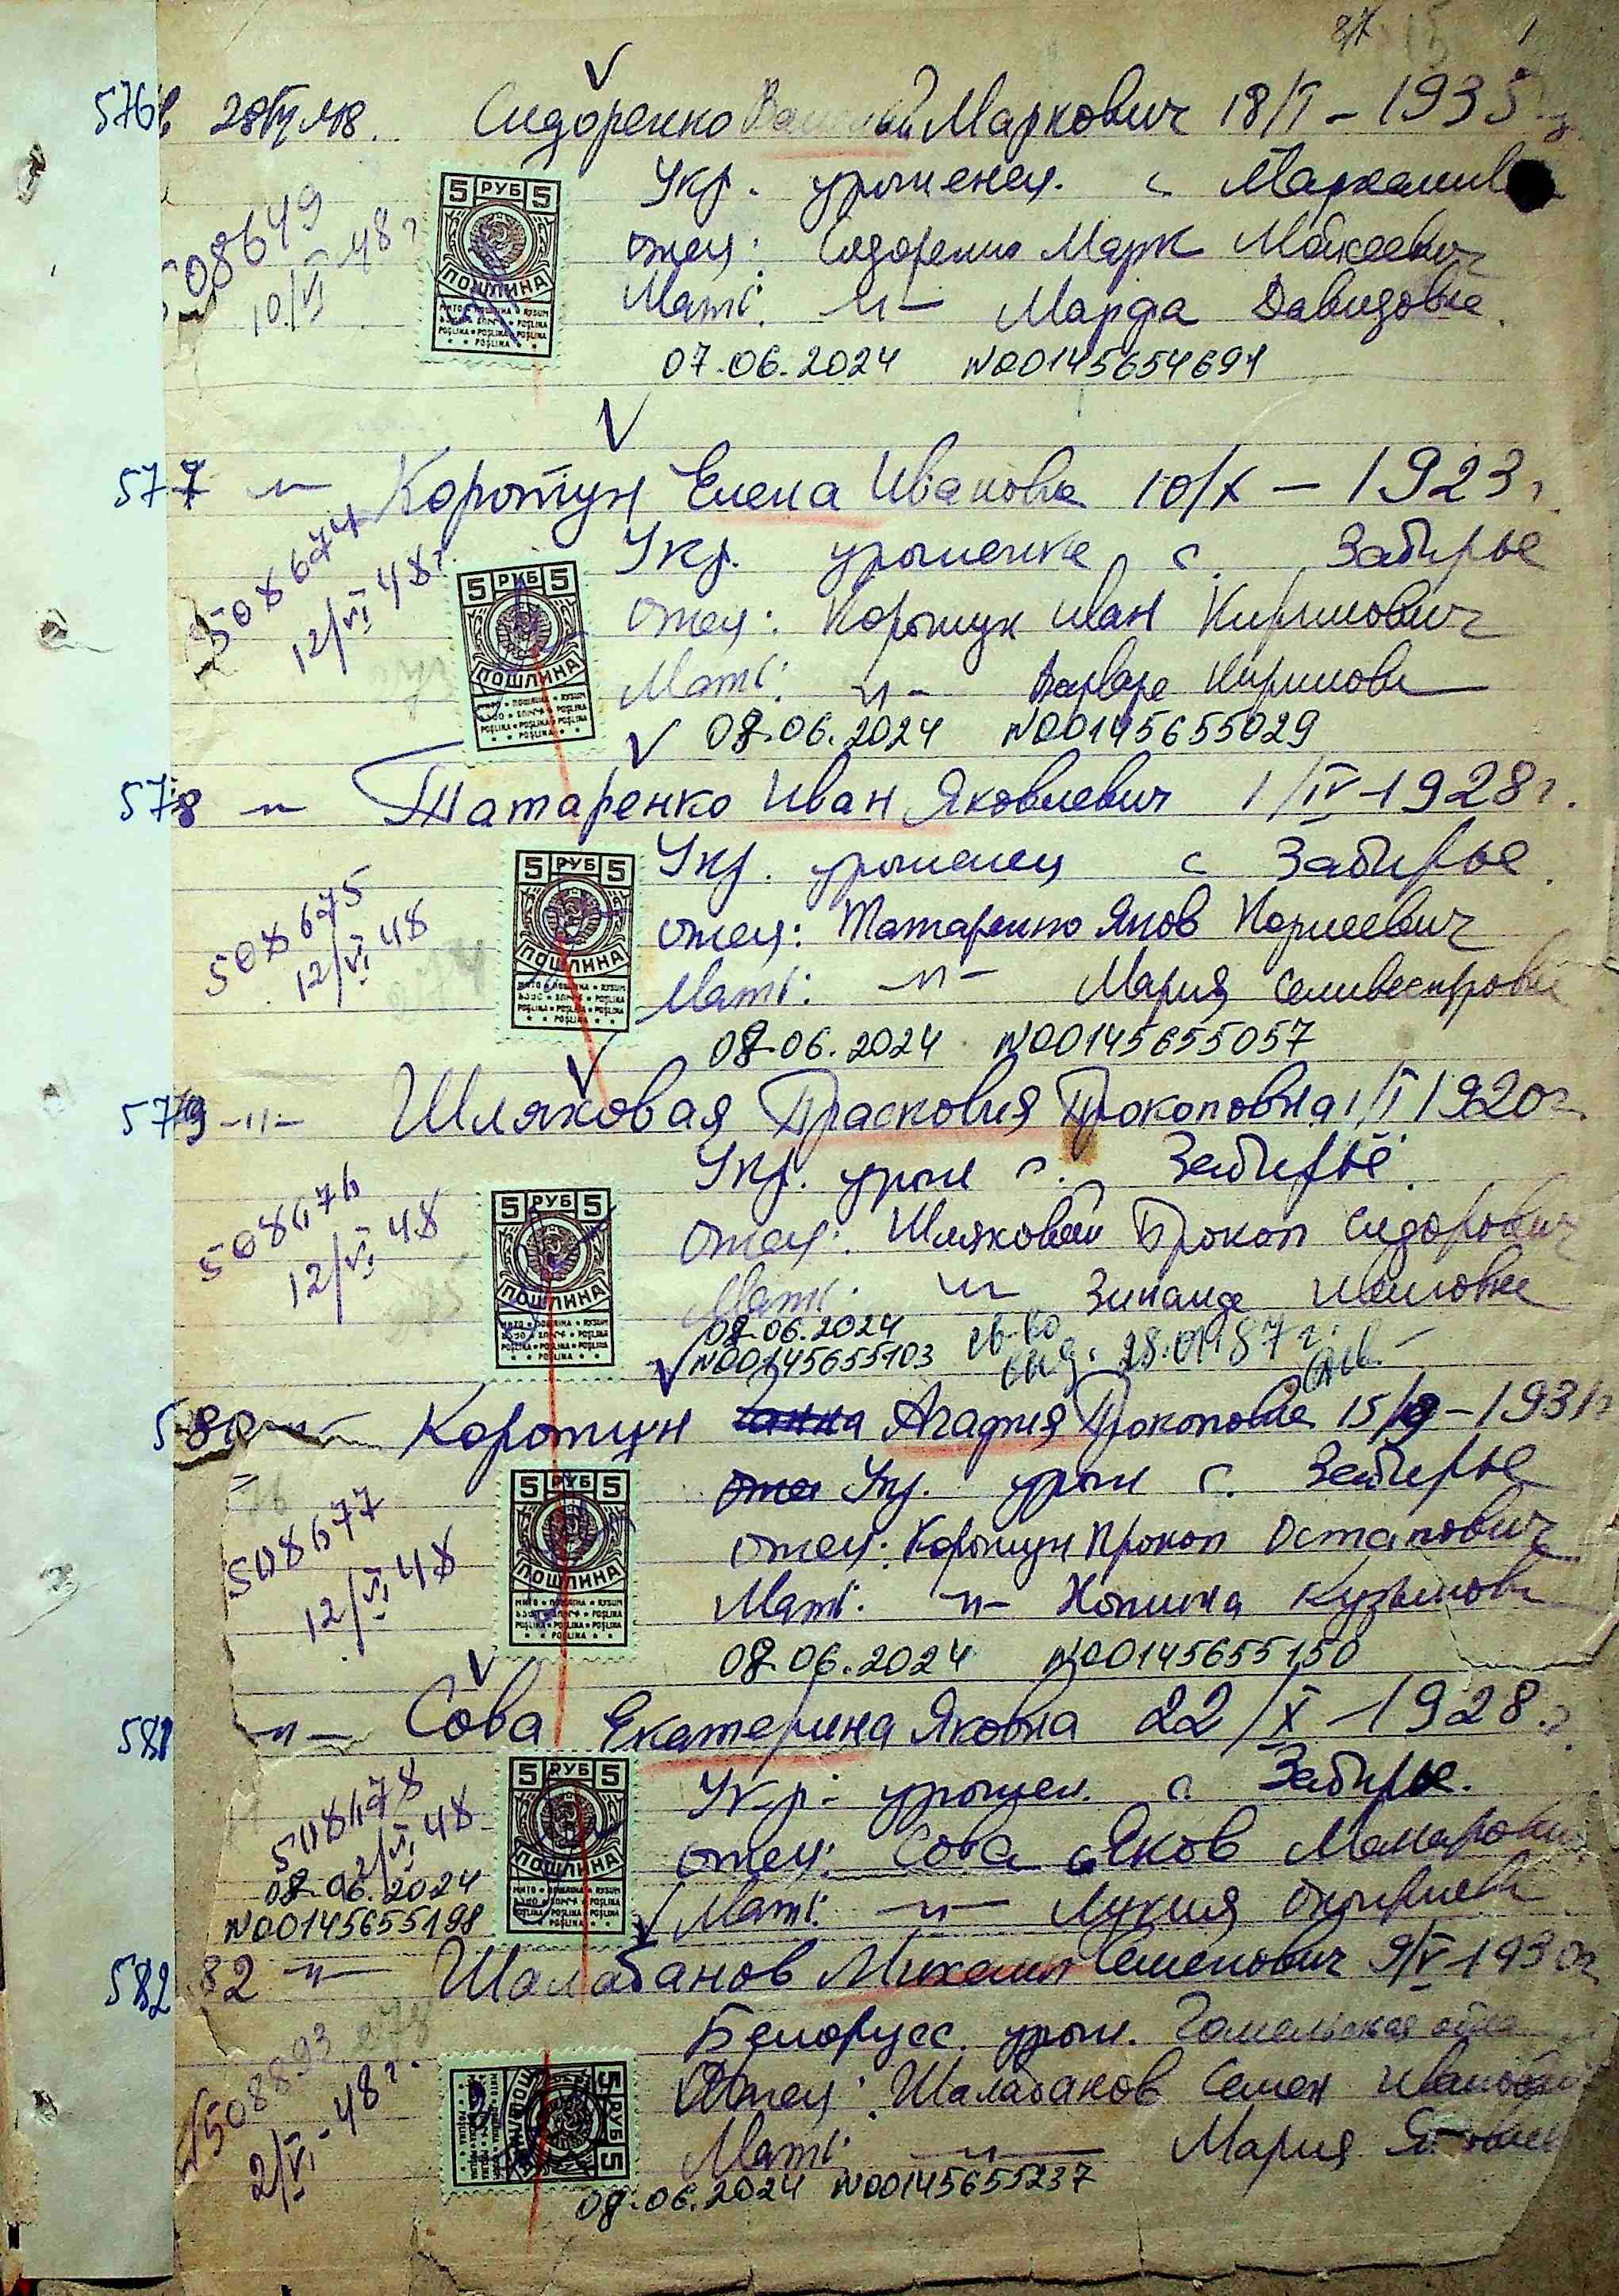 1
576 28/VI 48. Сидоренко Маркович 18/I - 1935
5 РУБ 5
ПОШЛИНА
Укр. уроженец. с
508649
10/VI 48 г
отец: Сидоренко Марк Мойсеевич
Маті: -"- Марфа Давидовна.
07.06.2024 N00145654691
577 -"- Коротун Елена Ивановна 10/X - 1923 г.
508674
12/VI 48г
5 РУБ 5
ПОШЛИНА
Укр. уроженка с. Забирье
Отец: Коротун Иван Кирилович
Маті: -"- Варвара Кириловн
08.06.2024 N00145655029
578 -"- Татаренко Иван Яковлевич 1/IV-1928 г.
508675
12/VI 48
5 РУБ 5
ПОШЛИНА
Укр. уроженец с Забирье
отец: Татаренко Яков Корнеевич
Маті: -"- Мария Селивестровн
08.06.2024 N00145655057
579 -"- Шляховая Прасковия Прокоповна 1/I 1920 г.
508676
12/VI 48
5 РУБ 5
ПОШЛИНА
Укр. урож с. Забирьё
Отец: Шляховой Прокоп Сидорович
Маті: -"- Зинаида
08.06.2024
N00145655103
св-во
выд. 28.01.87 г.
580 -"- Коротун Агафия Прокоповна 15/ - 1931г
508677
12/VI 48
5 РУБ 5
ПОШЛИНА
Укр. урож с. Забирье
отец: Коротун Прокоп Остапович
Маті: -"- Кузьмовн
08.06.2024 N00145655150
581 -"- Сова Екатерина Яковна 22/X - 1928 г.
508678
12/VI 48
08.06.2024
N00145655198
5 РУБ 5
ПОШЛИНА
Укр. урожен. с. Забирье.
отец: Сова Яков Макарович
Маті: -"- Лукия
582 82 -"- Шалабанов Михаил Семенович 9/V-1930г
508893
2/VI - 48 г.
5 РУБ 5
ПОШЛИНА
Белорусс. урож. Гомельская обл
Отец: Шалабанов Семен Иванович
Маті: -"- Мария
08.06.2024 N00145655237